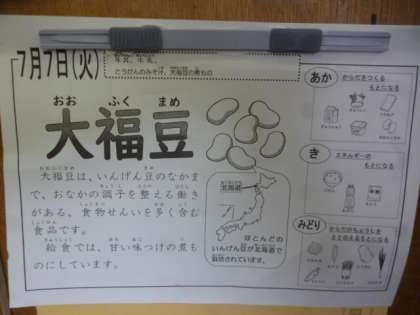 7月7日(火)
とうがんのみそ汁、大福豆の煮もの
おお ふく まめ
大福豆
大福豆は、いんげん豆のなかま
で、おなかの調子を整える働き
がある、食物せんいを多く含む
食品です。
給食では、甘い味つけの煮も
のにしています。
北海道
ほとんどの
いんげん豆が北海道で
栽培されています。
あか
からだをつくる
もとになる
き
エネルギーの
もとになる
みどり
からだのちょうしを
ととのえるもとになる